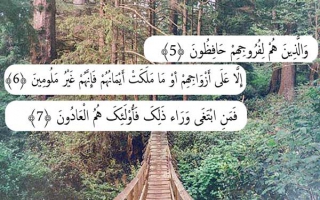 وَالَّذِينَ هُمْ لِفُرُوجِهِمْ حَافِظُونَ ﴿5﴾
إِلَّا عَلَى أَزْوَاجِهِمْ أَوْ مَا مَلَكَتْ أَيْمَانُهُمْ فَإِنَّهُمْ غَيْرُ مَلُومِينَ ﴿6﴾
فَمَنِ ابْتَغَى وَرَاء ذَلِكَ فَأُوْلَئِكَ هُمُ الْعَادُونَ ﴿7﴾